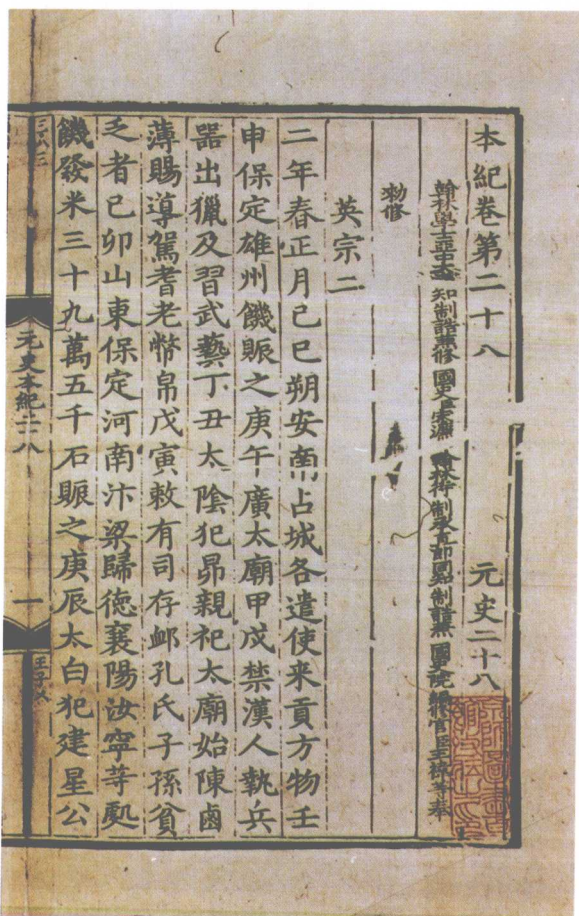 本紀卷第二十八　元史二十八
翰林學士亞中大夫知制誥兼修國史臣宋濂　翰林待制承直郎同知制誥兼國史院編脩官臣王禕等奉
勑修
英宗二
二年春正月己巳朔安南占城各遣使来貢方物壬
申保定雄州饑賑之庚午廣太廟甲戌禁漢人執兵
器出獵及習武藝丁丑太陰犯昴親祀太廟始陳鹵
薄賜導駕耆老幣帛戊寅敕有司存䘏孔氏子孫貧
乏者己卯山東保定河南汴梁歸德襄陽汝寧等䖏
饑發米三十九萬五千石賑之庚辰太白犯建星公
元史本紀二十八
一